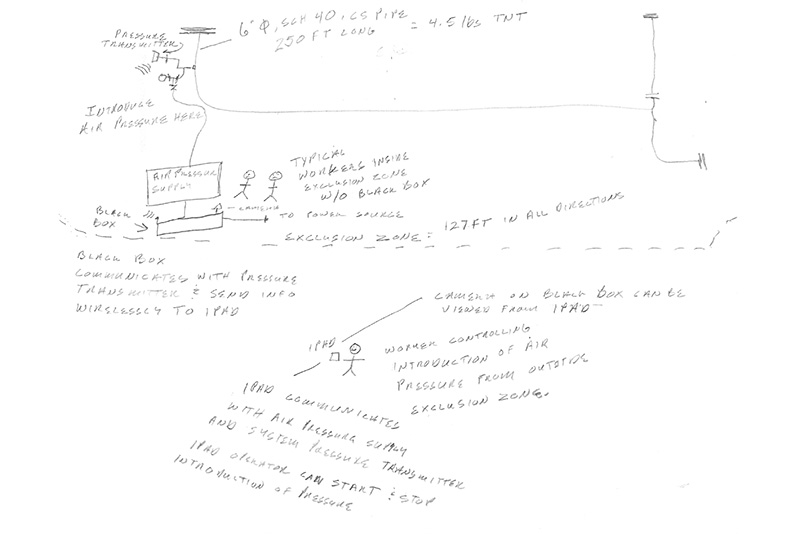 PRESSURE
TRANSMITTER
6" Φ, SCH 40, CS PIPE
250 FT LONG
= 4.5 lbs TNT
INTRODUCE
AIR PRESSURE HERE
AIR PRESSURE
SUPPLY
TYPICAL
WORKERS INSIDE
EXCLUSION ZONE
W/O BLACK BOX
CAMERA
BLACK
BOX
TO POWER SOURCE
EXCLUSION ZONE = 127 FT IN ALL DIRECTIONS
BLACK BOX
COMMUNICATES WITH PRESSURE
TRANSMITTER & SEND INFO
WIRELESSLY TO IPAD
CAMERA ON BLACK BOX CAN BE
VIEWED FROM IPAD
IPAD
WORKER CONTROLLING
INTRODUCTION OF AIR
PRESSURE FROM OUTSIDE
EXCLUSION ZONE.
IPAD COMMUNICATES
WITH AIR PRESSURE SUPPLY
AND SYSTEM PRESSURE TRANSMITTER
IPAD OPERATOR CAN START & STOP
INTRODUCTION OF PRESSURE